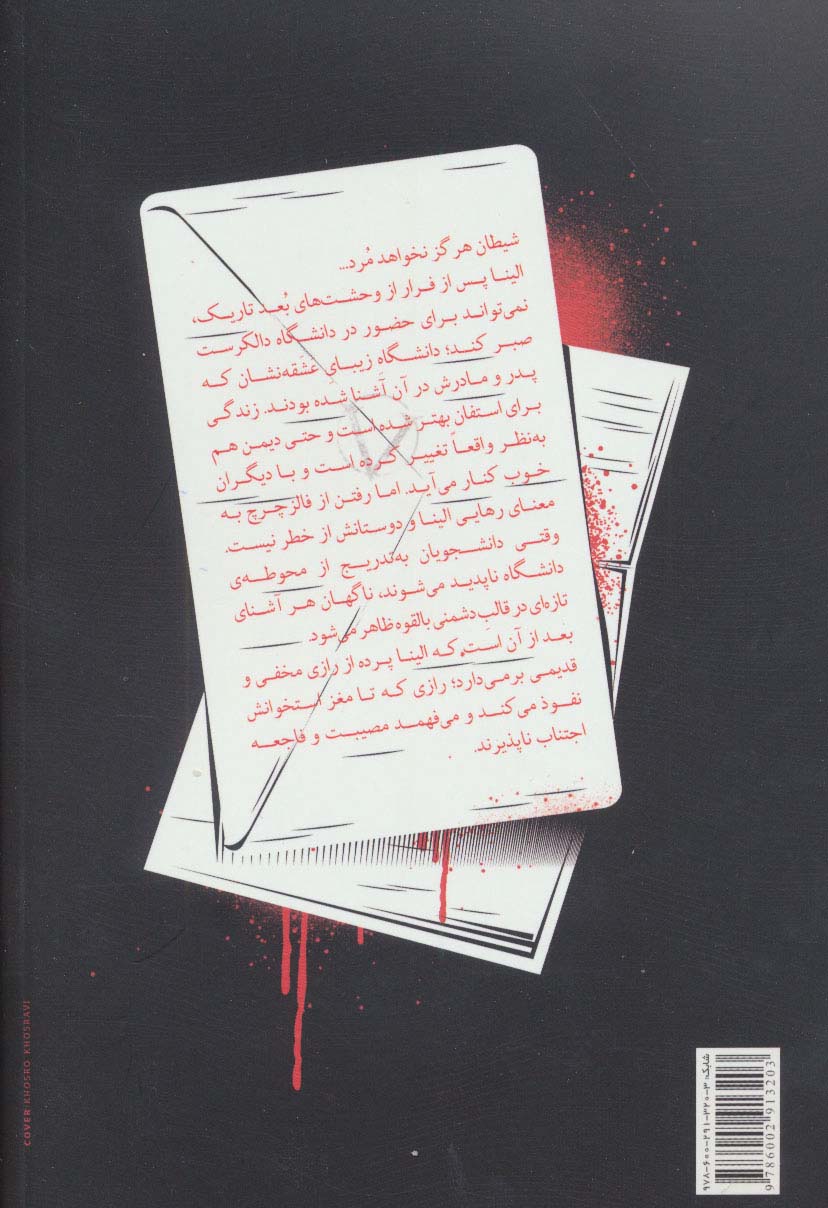 شیطان هرگز نخواهد مُرد...
الینا پس از فرار از وحشت‌های بُعد تاریک،
نمی‌تواند برای حضور در دانشگاه دالکرست
صبر کند؛ دانشگاه زیبای عَشَقه‌نشان که
پدر و مادرش در آن آشنا شده بودند. زندگی
برای استفان بهتر شده است و حتی دیمن هم
به‌نظر واقعاً تغییر کرده است و با دیگران
خوب کنار می‌آید. اما رفتن از فالزچرچ به
معنای رهایی الینا و دوستانش از خطر نیست.
وقتی دانشجویان به‌تدریج از محوطه‌ی
دانشگاه ناپدید می‌شوند، ناگهان هر آشنای
تازه‌ای در قالب دشمنی بالقوه ظاهر می‌شود.
بعد از آن است که الینا پرده از رازی مخفی و
قدیمی برمی‌دارد؛ رازی که تا مغز استخوانش
نفوذ می‌کند و می‌فهمد مصیبت و فاجعه
اجتناب ناپذیرند.
COVER KHOSRO KHOSRAVI
شابک: ۹۷۸-۶۰۰-۲۹۱-۳۲۰-۳
9 786002 913203